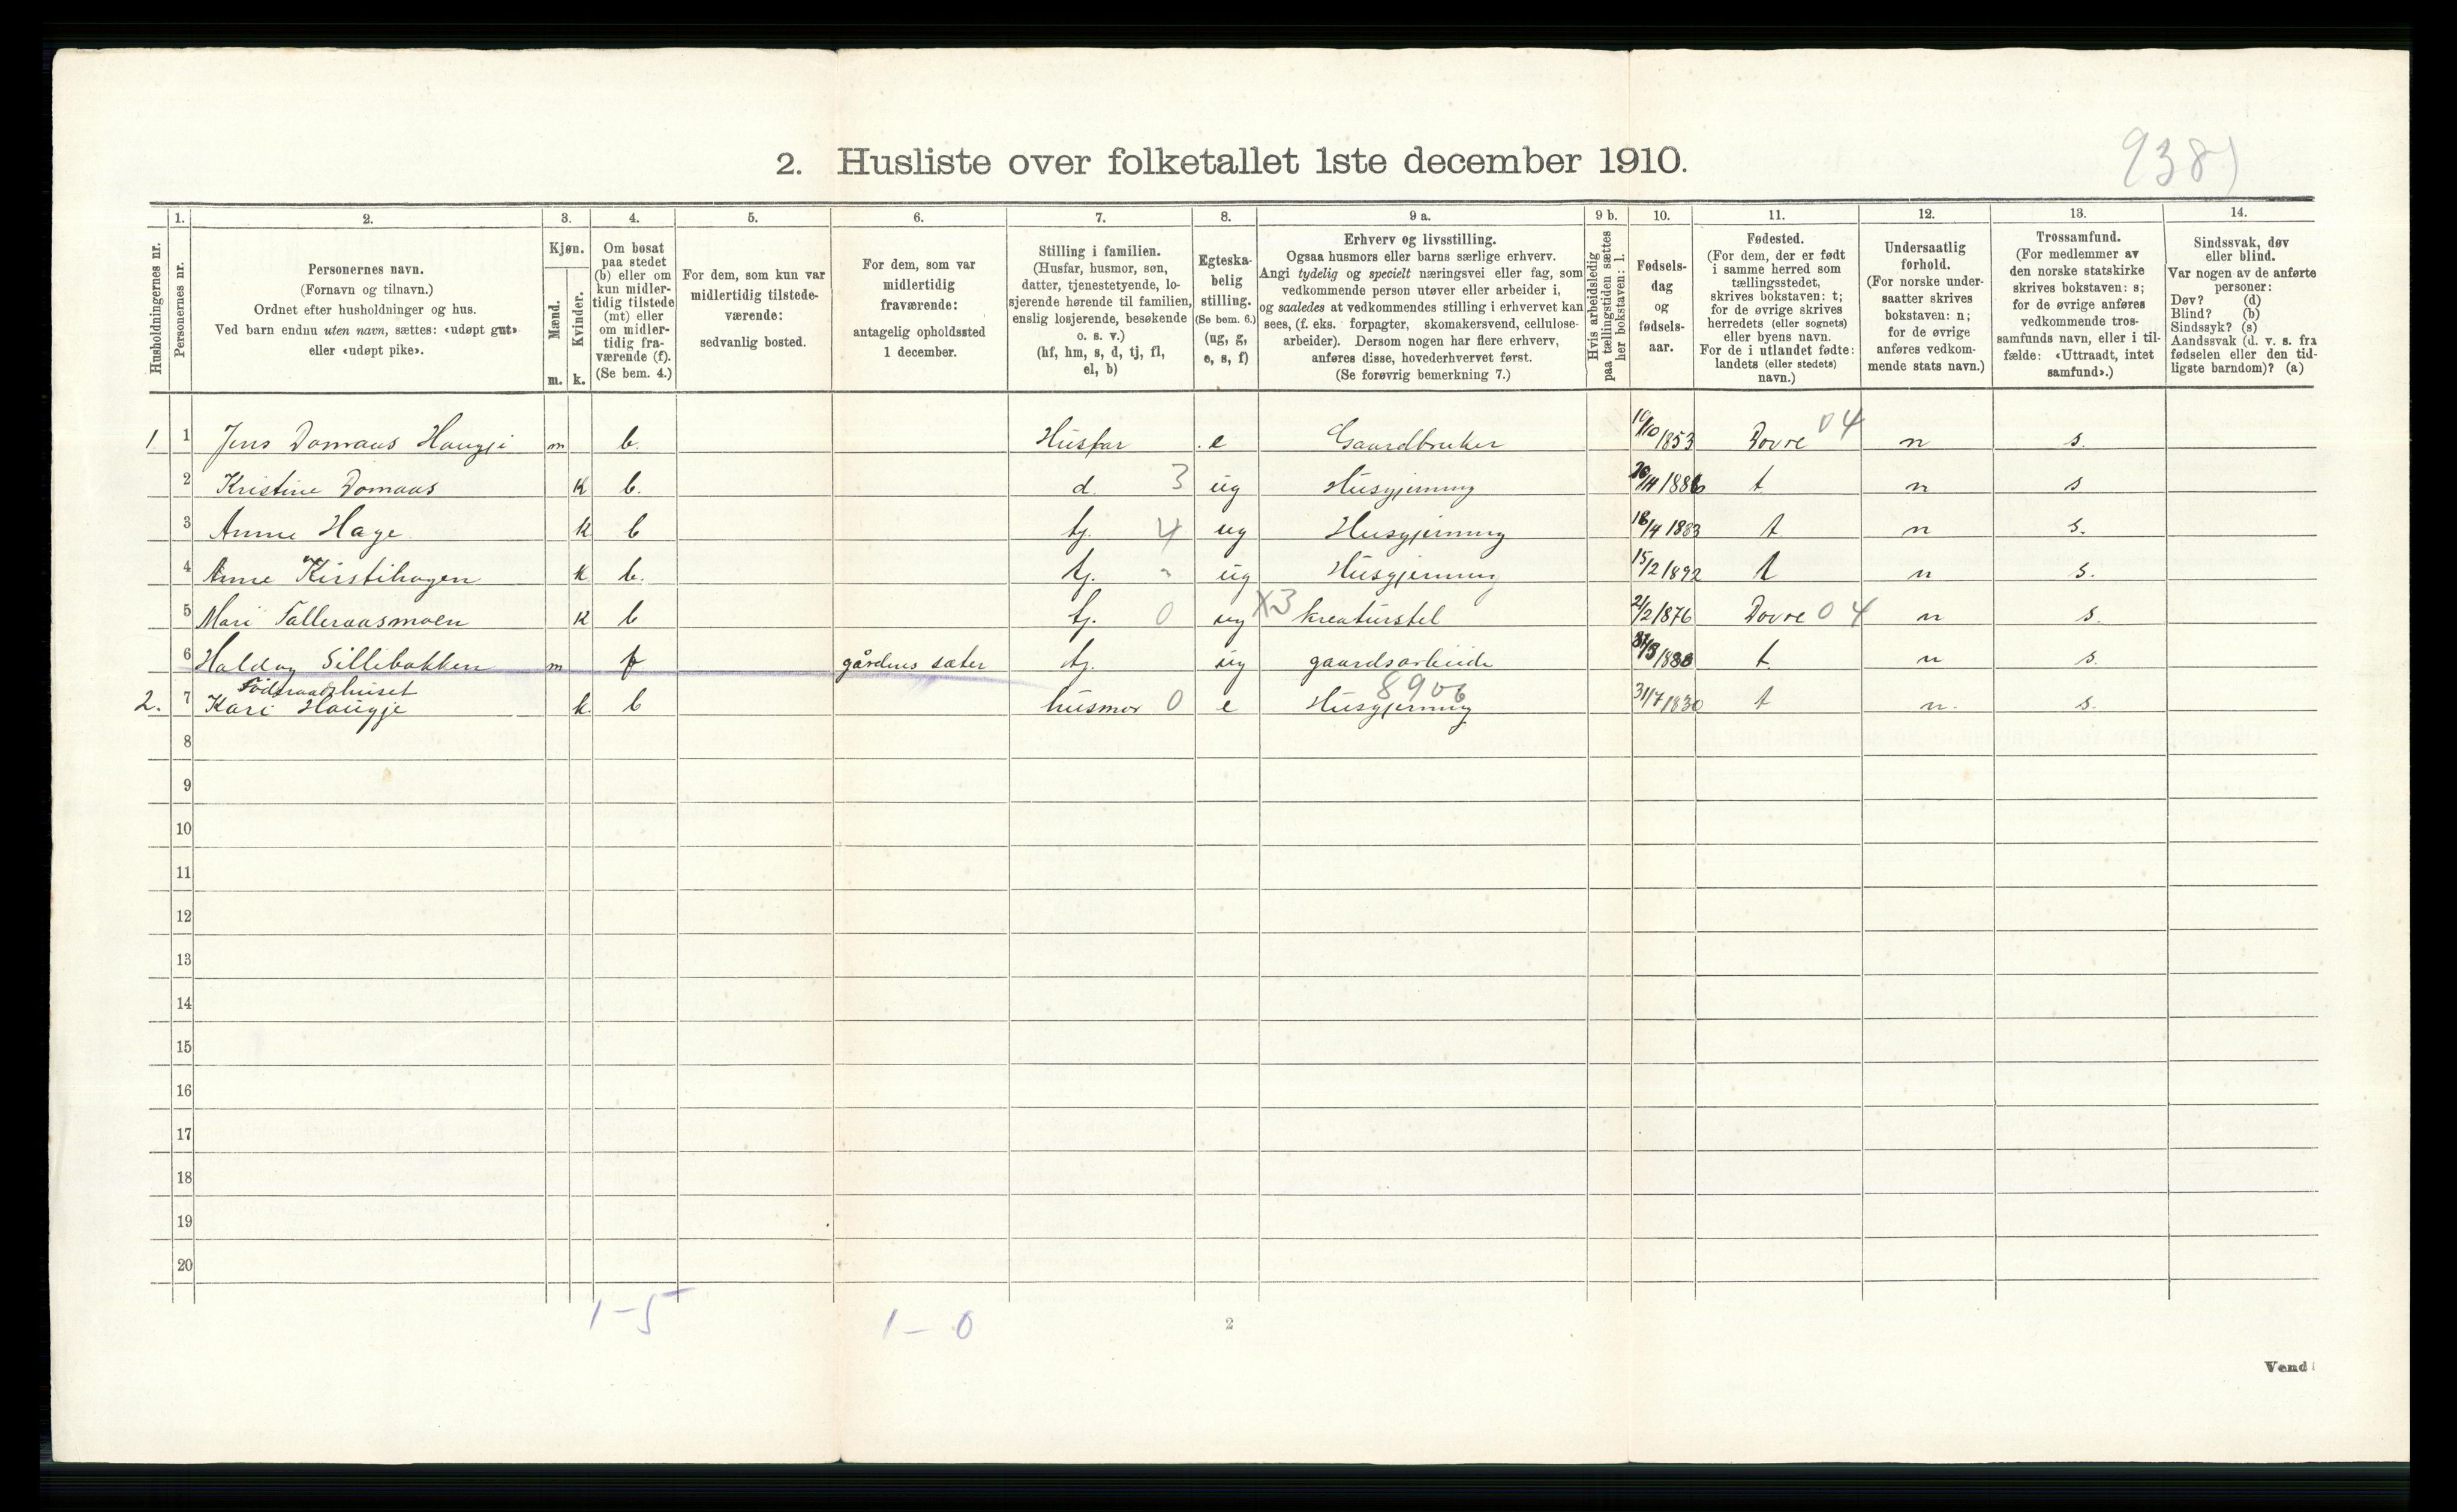 2. Husliste over folketallet 1ste december 1910.
938)
Husholdningernes nr.
1.
Personernes nr.
2.
Personernes navn.
(Fornavn og tilnavn.)
Ordnet efter husholdninger og hus.
Ved barn endnu uten navn, sættes: «udøpt gut»
eller «udøpt pike».
3.
Kjøn.
Mænd.
m.
Kvinder.
k.
4.
Om bosat
paa stedet
(b) eller om
kun midler-
tidig tilstede
(mt) eller
om midler-
tidig fra-
værende (f).
(Se bem. 4.)
5.
For dem, som kun var
midlertidig tilstede-
værende:
sedvanlig bosted.
6.
For dem, som var
midlertidig
fraværende:
antagelig opholdssted
1 december.
7.
Stilling i familien.
(Husfar, husmor, søn,
datter, tjenestetyende, lo-
sjerende hørende til familien,
enslig losjerende, besøkende
o. s. v.)
(hf, hm, s, d, tj, fl,
el, b)
8.
Egteska-
belig
stilling.
(Se bem. 6.)
(ug, g,
e, s, f)
9 a.
Erhverv og livsstilling.
Ogsaa husmors eller barns særlige erhverv.
Angi tydelig og specielt næringsvei eller fag, som
vedkommende person utøver eller arbeider i,
og saaledes at vedkommendes stilling i erhvervet kan
sees, (f. eks. forpagter, skomakersvend, cellulose-
arbeider). Dersom nogen har flere erhverv,
anføres disse, hovederhvervet først.
(Se forøvrig bemerkning 7.)
9 b.
Hvis arbeidsledig
paa tællingstiden sættes
her bokstaven: l.
10.
Fødsels-
dag
og
fødsels-
aar.
11.
Fødested.
(For dem, der er født
i samme herred som
tællingsstedet,
skrives bokstaven: t;
for de øvrige skrives
herredets (eller sognets)
eller byens navn.
For de i utlandet fødte:
landets (eller stedets)
navn.)
12.
Undersaatlig
forhold.
(For norske under-
saatter skrives
bokstaven: n;
for de øvrige
anføres vedkom-
mende stats navn.)
13.
Trossamfund.
(For medlemmer av
den norske statskirke
skrives bokstaven: s;
for de øvrige anføres
vedkommende tros-
samfunds navn, eller i til-
fælde: «Uttraadt, intet
samfund».)
14.
Sindssvak, døv
eller blind.
Var nogen av de anførte
personer:
Døv? (d)
Blind? (b)
Sindssyk? (s)
Aandssvak (d. v. s. fra
fødselen eller den tid-
ligste barndom)? (a)
1. 1 Jens Domaas Haugje m b. Husfar e Gaardbruker 10/10 1853 Dovre 04 n s.
2 Kristine Domaas k b. d. 3 ug Husgjerning 20/11 1886 t n s
3 Anne Hage k b tj. 4 ug Husgjerning 18/4 1883 t n s.
4 Anne Kirstihagen k b. tj. " ug Husgjerning 15/2 1892 t n s.
5 Mari Talleraasmoen k b tj. 0 ug X3 kreaturstel 2/2 1876 Dovre 04 n s.
6 Haldog Sillibakken m f gårdens sæter tj. ug gaardsarbeide 1888 t. n s.
Föderaadshuset
2. 7 Kari Haugje k. b husmor 0 e 8906 Husgjerning 31/7 1830 t n. s.
8
9
10
11
12
13
14
15
16
17
18
19
20
1 – 5
1 – 0
2
Vend